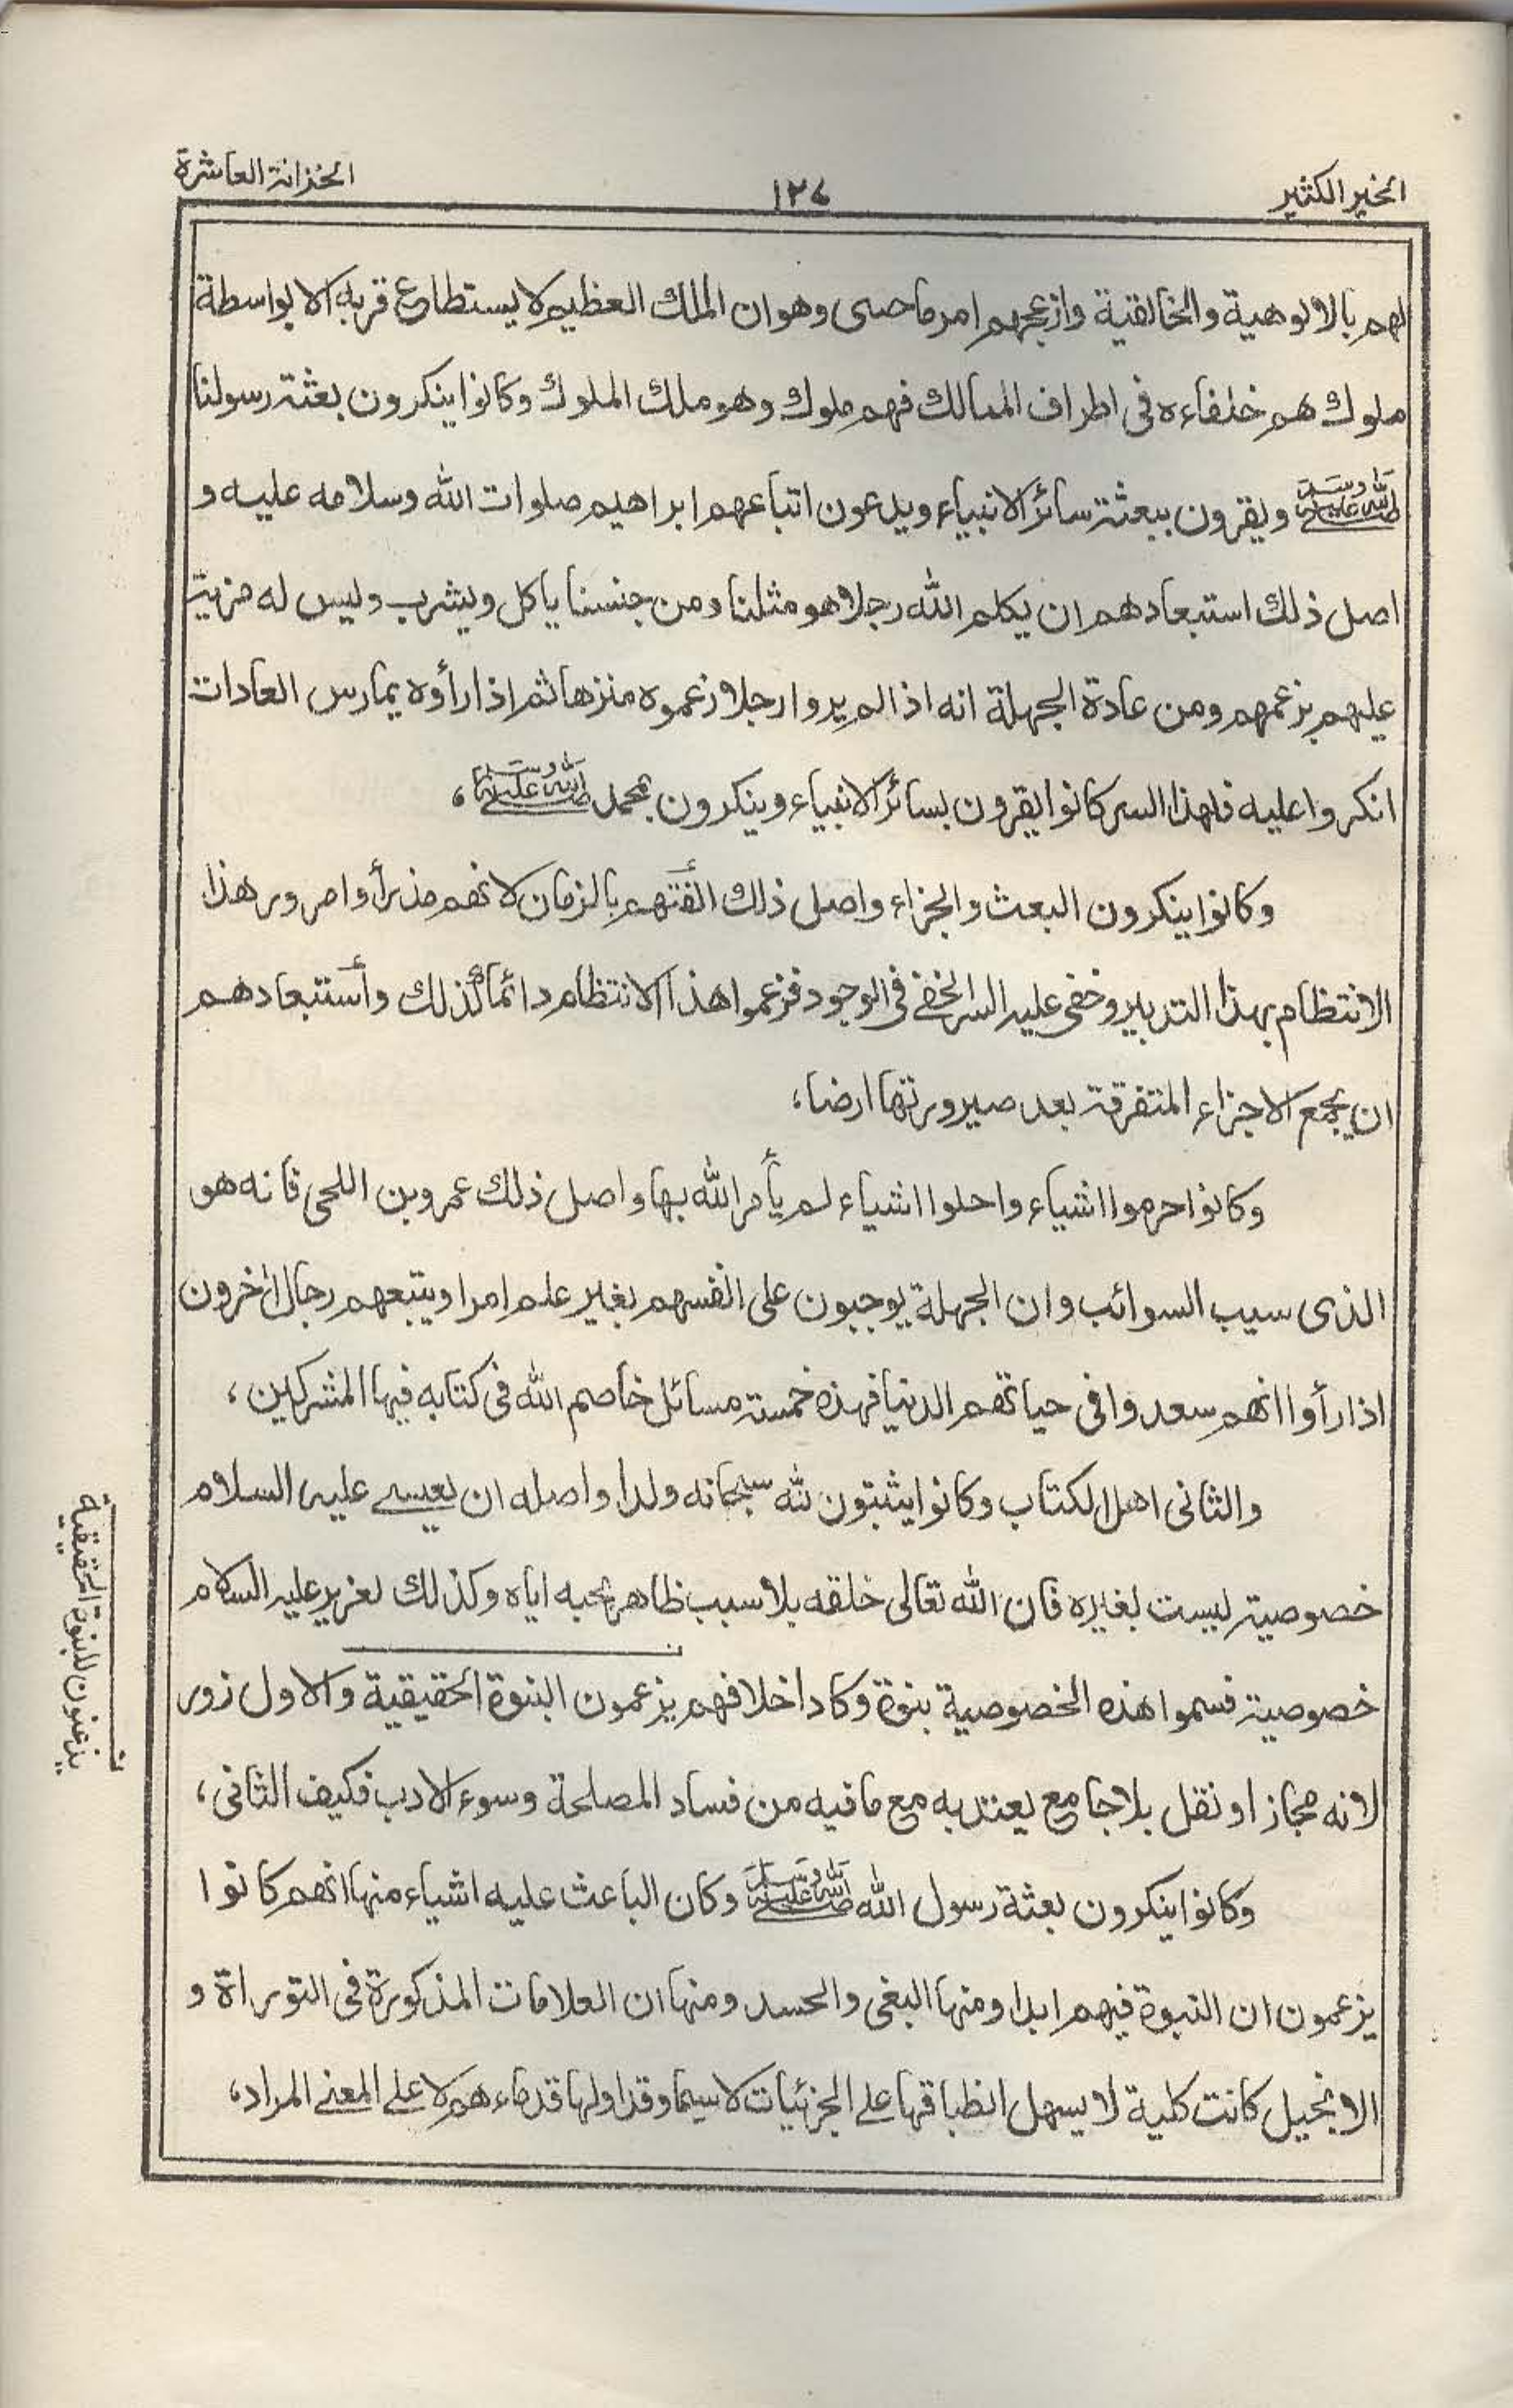 الخير الكثير
١٢٤
الخزانة العاشرة
لهم بالالوهية والخالقية وازعجهم امر ما حصى وهو ان الملك العظيم لا يستطاع قربه الا بواسطة
ملوك هم خلفاءه فى اطراف الممالك فهم ملوك وهو ملك الملوك وكانوا ينكرون بعثة رسولنا
صلى الله عليه وسلم ويقرون ببعثة سائر الانبياء ويدعون اتباعهم ابراهيم صلوات الله وسلامه عليه و
اصل ذلك استبعادهم ان يكلم الله رجلا هو مثلنا ومن جنسنا ياكل ويشرب وليس له مزية
عليهم بزعمهم ومن عادة الجهلة انه اذا لم يروا رجلا زعموه منزها ثم اذا رأوه يمارس العادات
انكروا عليه فلهذا السر كانوا يقرون بسائر الانبياء وينكرون بمحمد صلى الله عليه وسلم،
وكانوا ينكرون البعث والجزاء واصل ذلك الفتهم بالزمان لانهم مذ برأوا مرور هذا
الانتظام بهذا التدبير وخفى عليه السر الخفے فى الوجود فزعموا هذا الانتظام دائما كذلك وأستبعادهم
ان يجمع الاجزاء المتفرقة بعد صيرورتها ارضا،
وكانوا حرموا اشياء واحلوا اشياء لم يأمر الله بها واصل ذلك عمرو بن اللحى فانه هو
الذى سيب السوائب وان الجهلة يوجبون على انفسهم بغير علم امرا ويتبعهم رجال اٰخرون
اذا رأوا انهم سعدوا فى حياتهم الدنيا فهذه خمسة مسائل خاصم الله فى كتابه فيها المشركين،
والثانى اهل الكتاب وكانوا يثبتون لله سبحانه ولدا واصله ان لعيسے عليه السلام
خصوصية ليست لغيره فان الله تعالى خلقه بلا سبب ظاهر بحبه اياه وكذلك لعزير عليه السلام
خصوصية فسموا هذه الخصوصية بنوة وكاد اخلافهم يزعمون البنوة الحقيقية والاول زور
لانه مجاز او نقل بلا جامع يعتد به مع ما فيه من فساد المصلحة وسوء الادب فكيف الثانى،
وكانوا ينكرون بعثة رسول الله صلى الله عليه وسلم وكان الباعث عليه اشياء منها انهم كانوا
يزعمون ان النبوة فيهم ابدا ومنها البغى والحسد ومنها ان العلامات المذكورة فى التوراة و
الانجيل كانت كلية لا يسهل انطباقها علے الجزئيات لا سيما وقد اولها قدماءهم لا علے المعنے المراد،
ن
يزعنون للبنوة الحقيقية